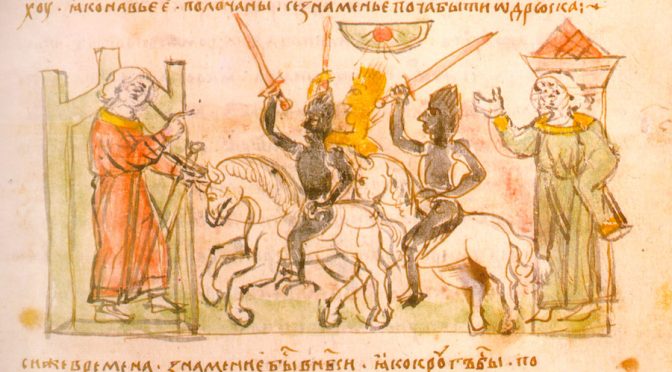 хоу · ꙗконавье е · полочаны · сезнаменье почабыти ѿдрюска :~
сижевремена · знамение бы внбси · ꙗко кроугъ бы · по